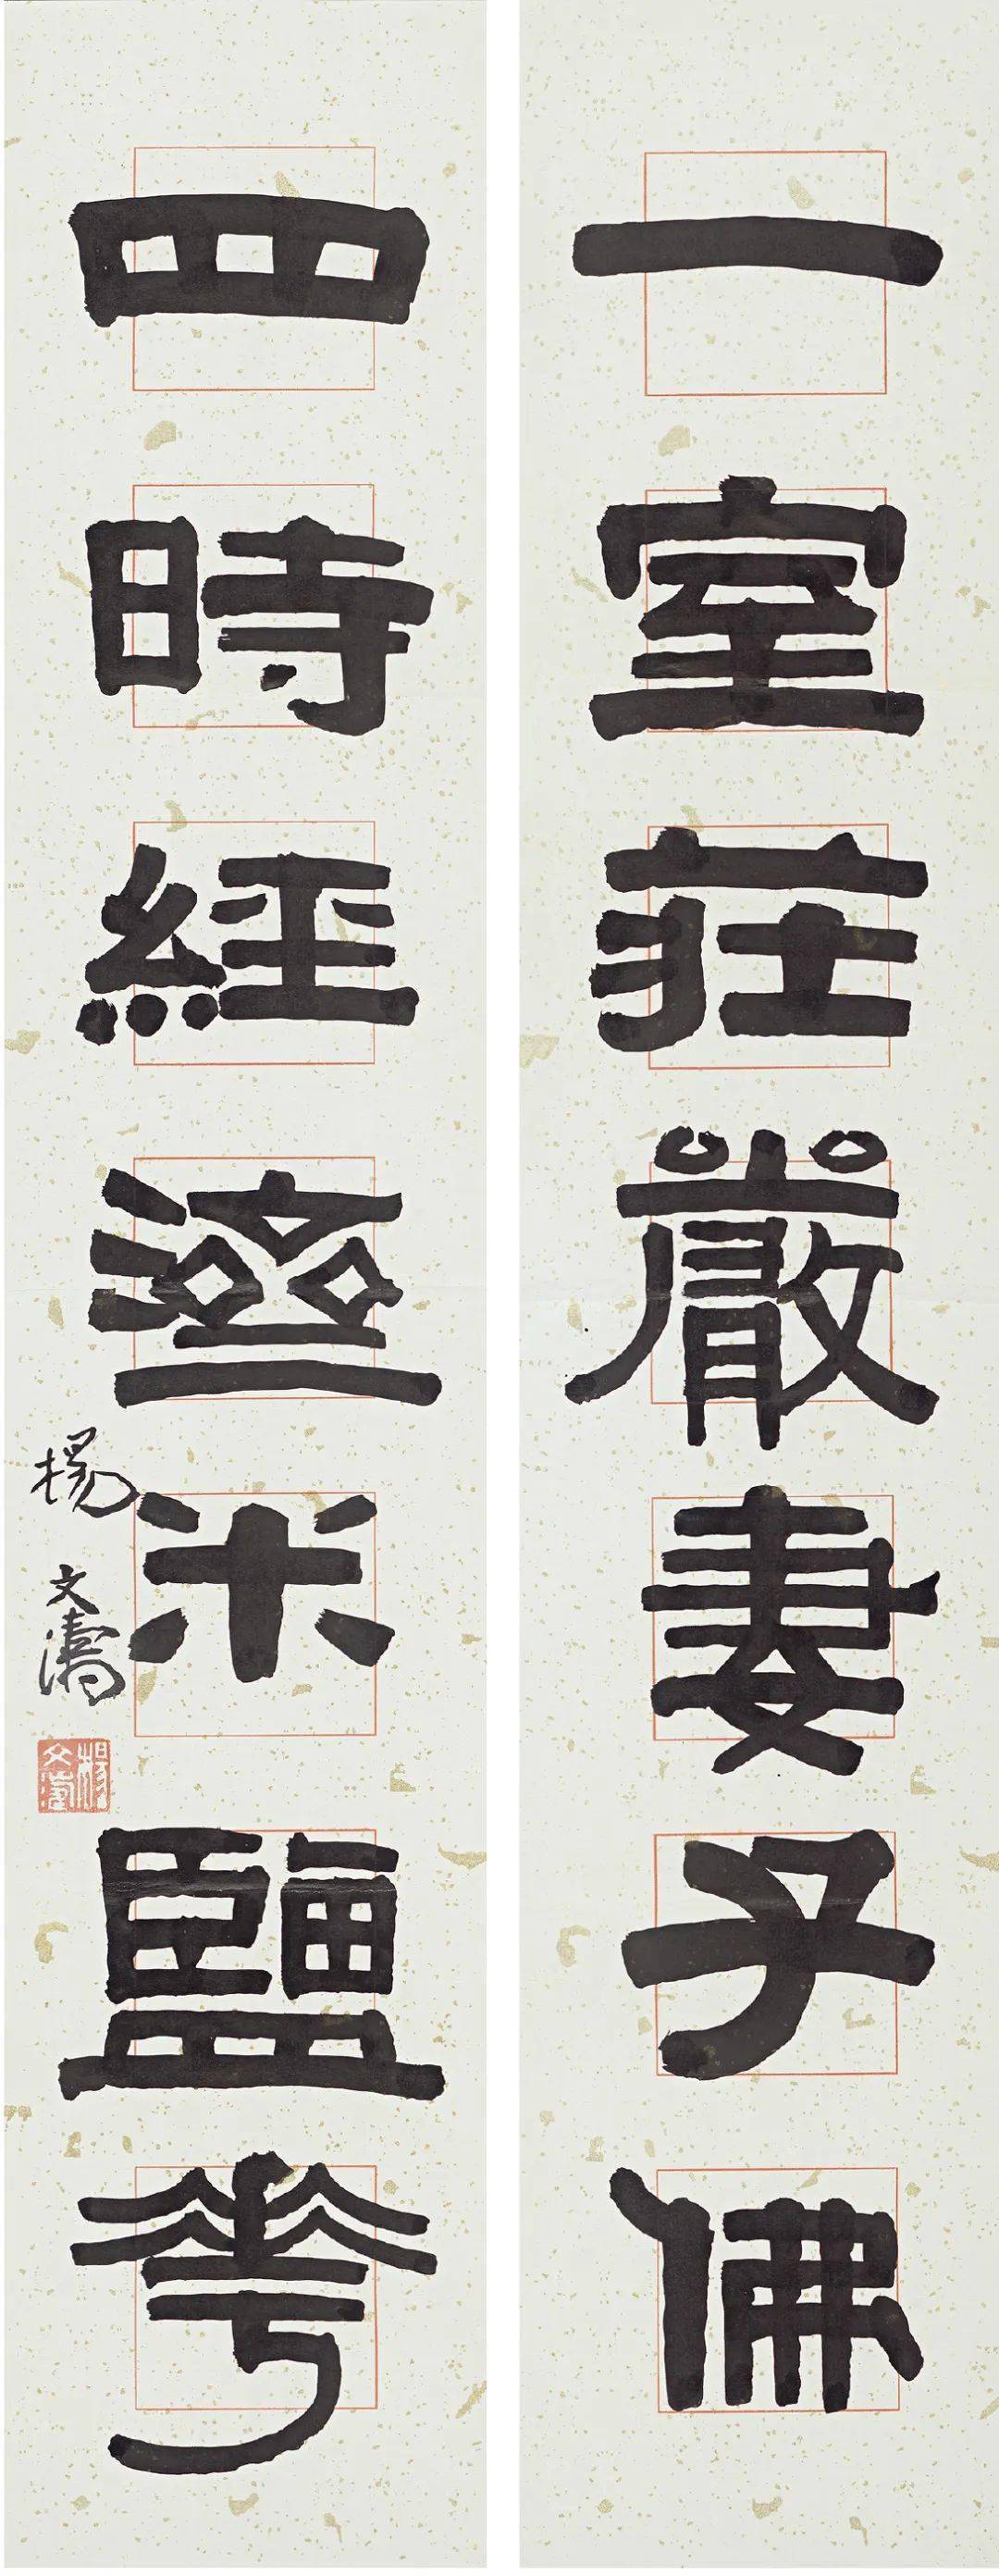 一室莊嚴妻子佛
四時經濟米鹽花
楊文濤
楊文濤